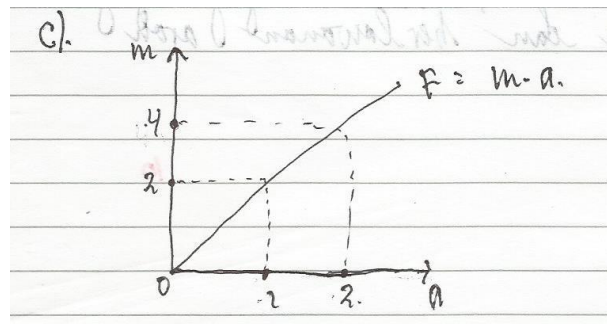 c).
m
F = m·a.
4
2
0
1
2.
a